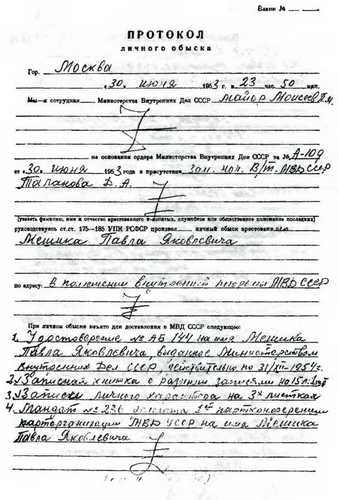 Бланк №
ПРОТОКОЛ
личного обыска
Гор. Москва
30 июня 1953 г. в 23 час. 50 мин.
Мы—я сотрудник Министерства Внутренних Дел СССР майор Моисеев П.И.
на основании ордера Министерства Внутренних Дел СССР за № А-109
от 30 июня 1953 года в присутствии зам. нач. В/т. МВД СССР
Таланова Д. А.
(указать фамилию, имя и отчество арестованного и понятых, служебное или общественное положение последних)
руководствуясь ст.ст. 175—185 УПК РСФСР произвел личный обыск арестованного
Мешика Павла Яковлевича
по адресу: В помещении Внутренней тюрьмы МВД СССР
При личном обыске взято для доставления в МВД СССР следующее:
1. Удостоверение № АБ 144 на имя Мешика
Павла Яковлевича, выданное Министерством
Внутренних Дел СССР, действительно по 31/XII-1954 г.
2. Записная книжка с разными записями на 15
3. Записки личного характера на 3х листках
4. Мандат № 236 делегата 1ой партконференции
парторганизации МВД УССР на имя Мешика
Павла Яковлевича